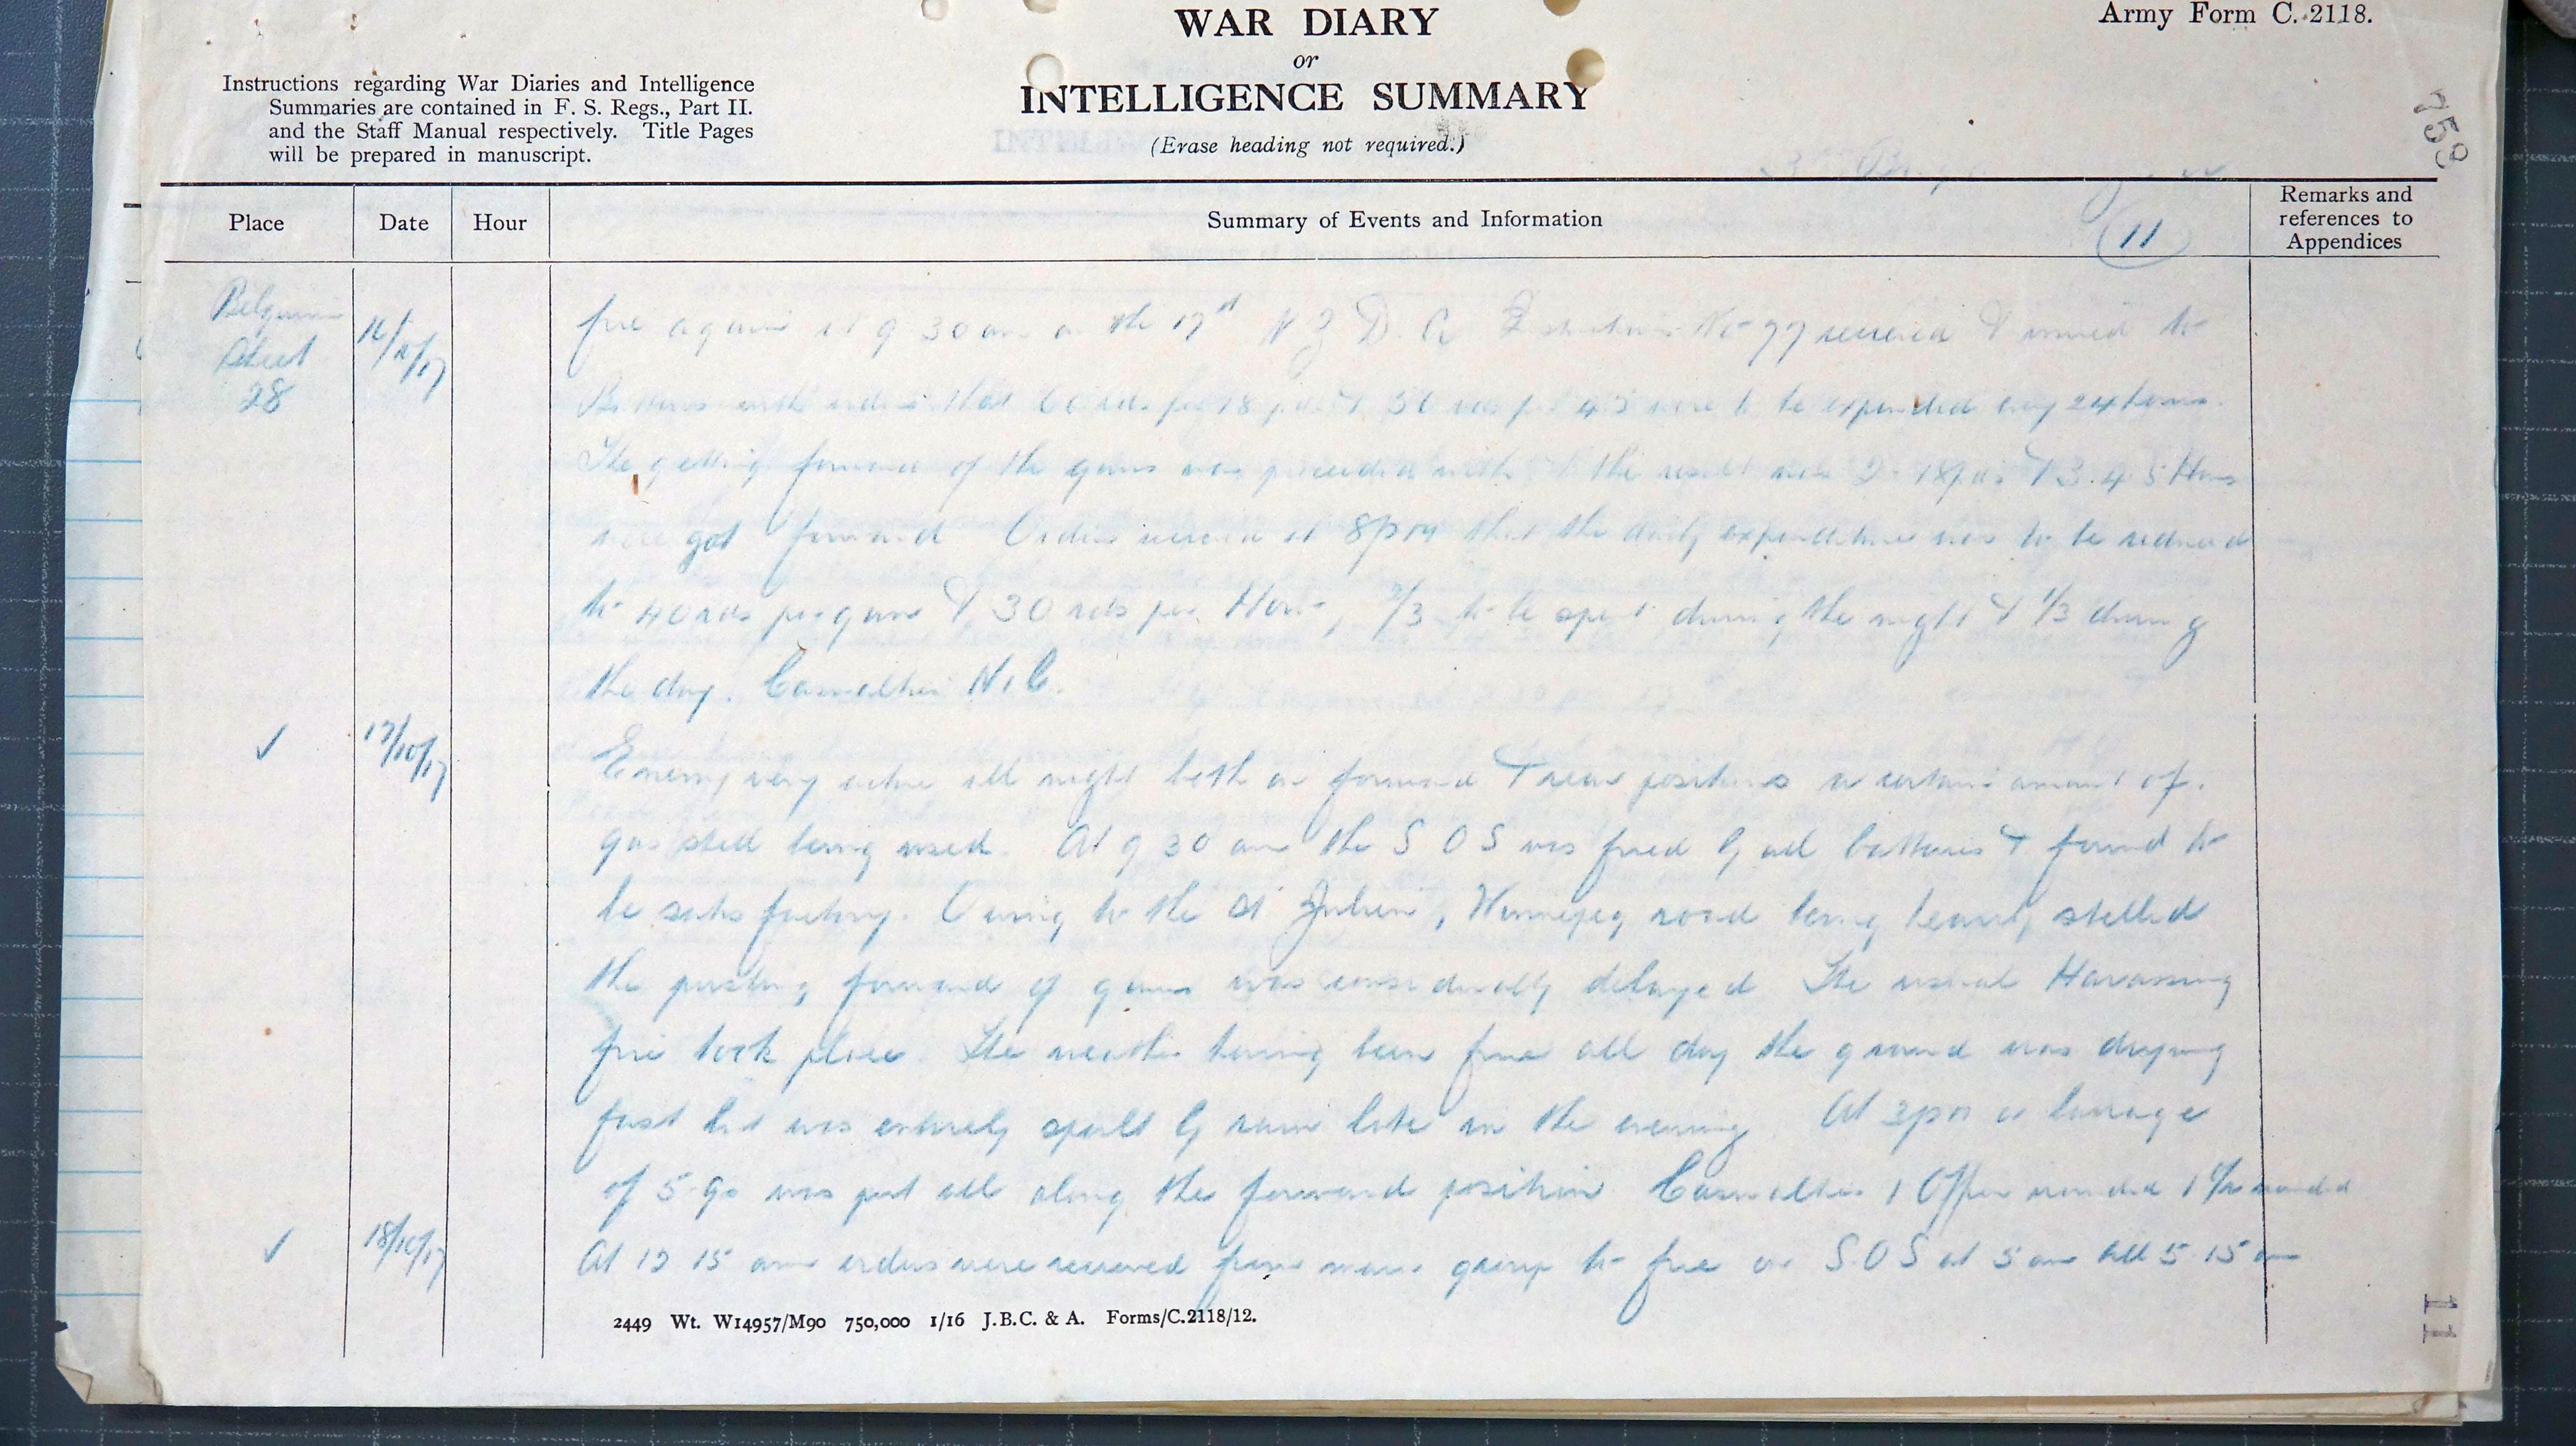 WAR DIARY
Army Form C. 2118.
or
INTELLIGENCE SUMMARY
(Erase heading not required.)
Instructions regarding War Diaries and Intelligence
Summaries are contained in F. S. Regs., Part II.
and the Staff Manual respectively. Title Pages
will be prepared in manuscript.
759
Place
Date
Hour
Summary of Events and Information
11
Remarks and
references to
Appendices
Belgium
Sheet
28
16/10/17
fire again at 9 30 am on the 17th N Z D. A Instructions No 77 received & issued to
Batteries with orders that 60 rds per 18 pdr & 50 rds per 4.5 were to be expended every 24 hours.
The getting forward of the guns was proceeded with & the result was 2- 18pdrs & 3. 4. 5 Hows
were got forward Orders received at 8pm that the daily expenditure was to be reduced
to 40 rds per gun & 30 rds per How, 2/3 to be spent during the night & 1/3 during
the day. Casualties Nil.
✓
17/10/17
Enemy very active all night both on forward & rear positions a certain amount of.
gas shell being used. At 9 30 am the S O S was fired by all batteries & found to
be satisfactory. Owing to the St Julien, Winnipeg road being heavily shelled
the pushing forward of guns was considerably delayed The usual Harassing
fire took place. The weather having been fine all day the ground was drying
fast but was entirely spoilt by rain late in the evening. At 3pm a barrage
of 5.9s was put all along the forward position Casualties 1 Officer wounded 1 O/R wounded
✓
18/10/17
At 12 15 am orders were received from group to fire on S.O S at 5 am till 5.15 am
2449 Wt. W14957/M90 750,000 1/16 J.B.C. & A. Forms/C.2118/12.
11